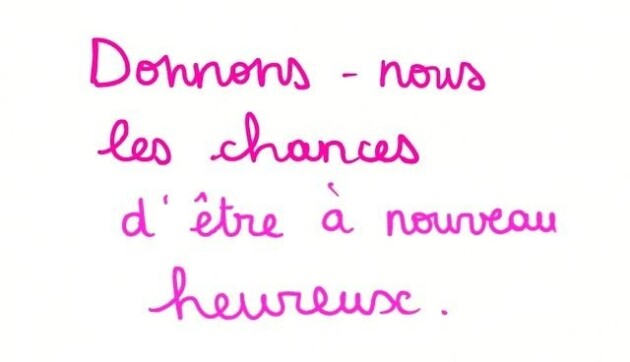 Donnons - nous
les chances
d'être à nouveau
heureux.